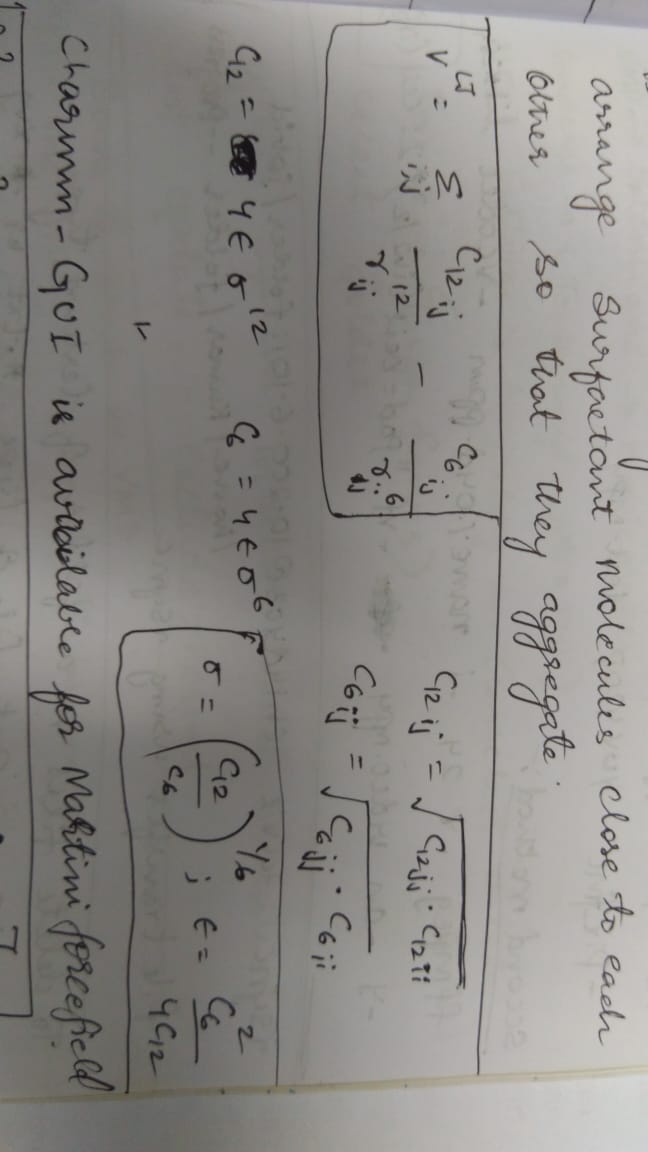 arrange Surfactant molecules close to each
other so that they aggregate.
V^LJ = Σ_i,j C12_ij / r_ij^12 - C6_ij / r_ij^6
C12_ij = √(C12_jj · C12_ii)
C6_ij = √(C6_jj · C6_ii)
C12 = 4 ε σ^12 C6 = 4 ε σ^6
σ = (C12 / C6)^1/6 ; ε = C6^2 / 4C12
Charmm-GUI is available for Martini forcefield.